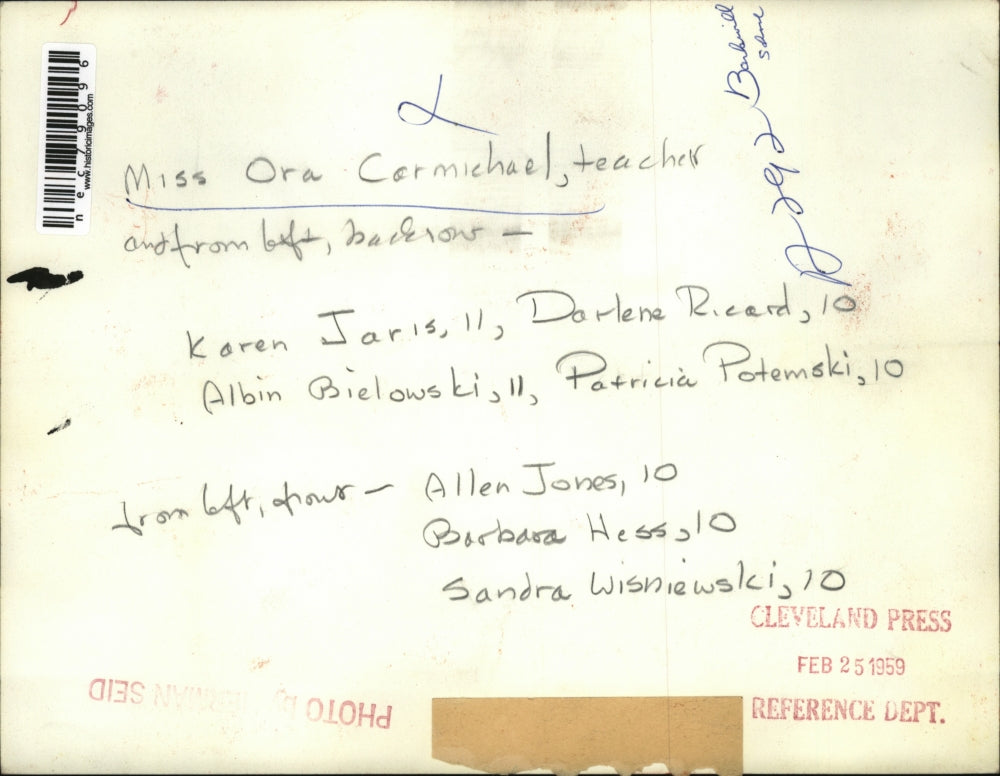 nec79096
www.historicimages.com
Miss Ora Carmichael, teacher
and from left, backrow —
Karen Jaris, 11, Darlene Ricard, 10
Albin Bielowski, 11, Patricia Potemski, 10
from left, front — Allen Jones, 10
Barbara Hess, 10
Sandra Wisniewski, 10
CLEVELAND PRESS
FEB 25 1959
REFERENCE DEPT.
PHOTO by HERMAN SEID